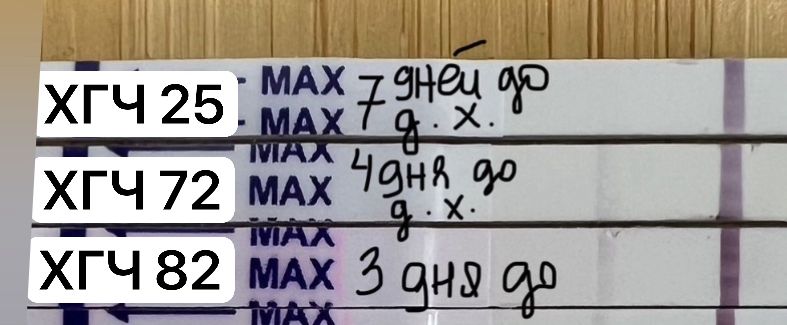 ХГЧ 25
MAX 7 дней до
MAX д.х.
MAX
ХГЧ 72
MAX 4 дня до
д.х.
MAX
ХГЧ 82
MAX 3 дня до
MAX